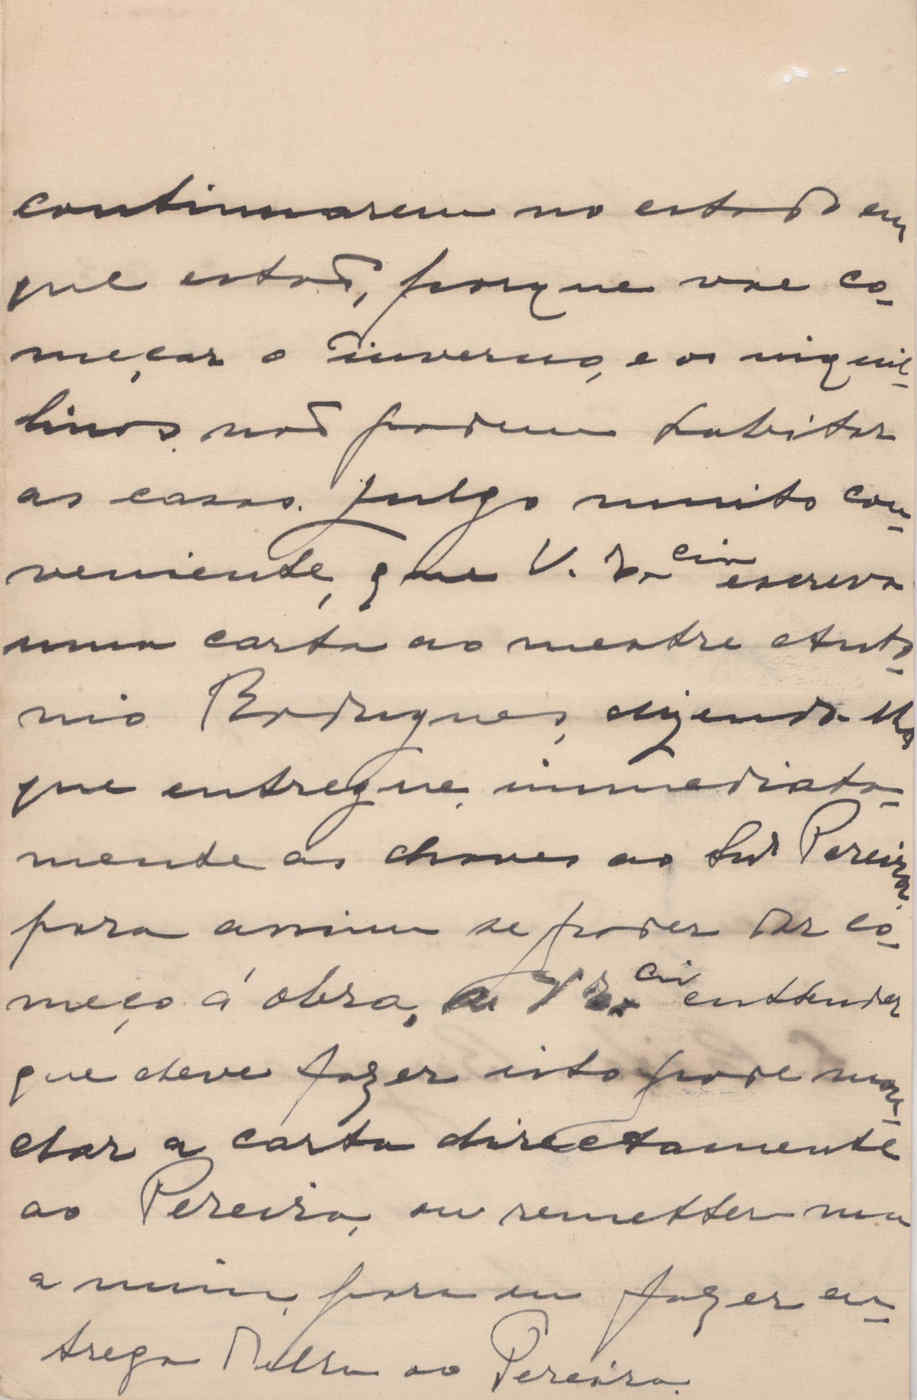 continuarem no estado em
que estaõ, porque vae co-
meçar o inverno, e os inqui-
linos naõ podem habitar
as casas. Julgo muito con-
veniente, que V. Ex.cia escreva
uma carta ao mestre Anto-
nio Rodrigues, dizendo-lhe
que entregue immediata-
mente as chaves ao Snr Pereira
para assim se poder dar co-
meço á obra, se V Ex.cia entender
que deve fazer isto pode man-
dar a carta directamente
ao Pereira, ou remetter-ma
a mim, para eu fazer en-
trega della ao Pereira.